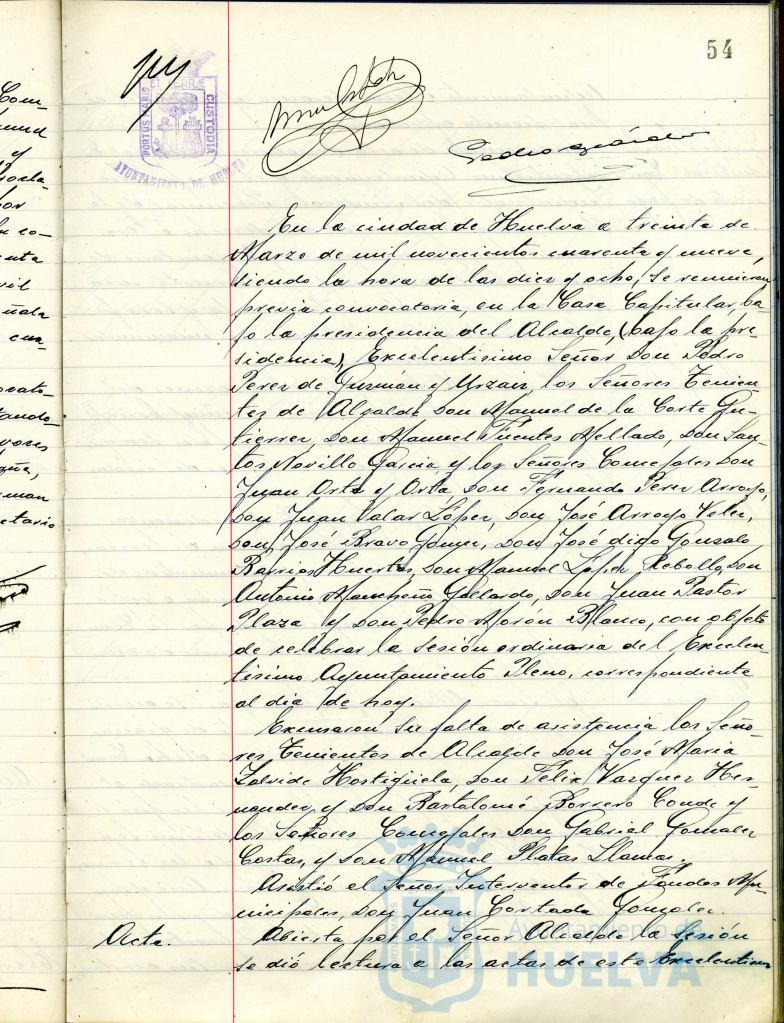 54
PORTUS MARIS
ET TERRÆ
CUSTODIA
AYUNTAMIENTO DE HUELVA
En la ciudad de Huelva a treinta de
Marzo de mil novecientos cuarenta y nueve,
siendo la hora de las diez y ocho, se reunieron
previa convocatoria, en la Casa Capitular, ba-
jo la presidencia del Alcalde, (bajo la pre-
sidencia), Excelentisimo Señor Don Pedro
Perez de Guzmán y Urzaiz, los Señores Tenien-
tes de Alcalde Don Manuel de la Corte Gu-
tierrez, Don Manuel Fuentes Mellado, Don San-
tos Novillo Garcia, y los Señores Concejales Don
Juan Orta y Orta, Don Fernando Perez Arroyo,
Don Juan Salar López, Don José Arroyo Velez,
Don José Bravo Gomez, Don José digo Gonzalo
Barrios Huertas, Don Manuel López Rebollo, Don
Antonio Mancheño Gallardo, Don Juan Pastor
Plaza y Don Pedro Morón Blanco, con objeto
de celebrar la sesión ordinaria del Excelen-
tisimo Ayuntamiento Pleno, correspondiente
al dia de hoy.
Excusaron su falta de asistencia los Seño-
res Tenientes de Alcalde Don José Maria
Zalvide Hostigüela, Don Felix Vazquez Her-
nandez, y Don Bartolomé Borrero Conde y
los Señores Concejales Don Gabriel Gonzalez
Costas, y Don Manuel Platas Llamas.
Asistió el Señor Interventor de Fondos Mu-
nicipales, Don Juan Cortada Gonzalez.
Acta.
Abierta por el Señor Alcalde la sesión
se dió lectura a las actas de este Excelentisimo
Ayuntamiento
HUELVA